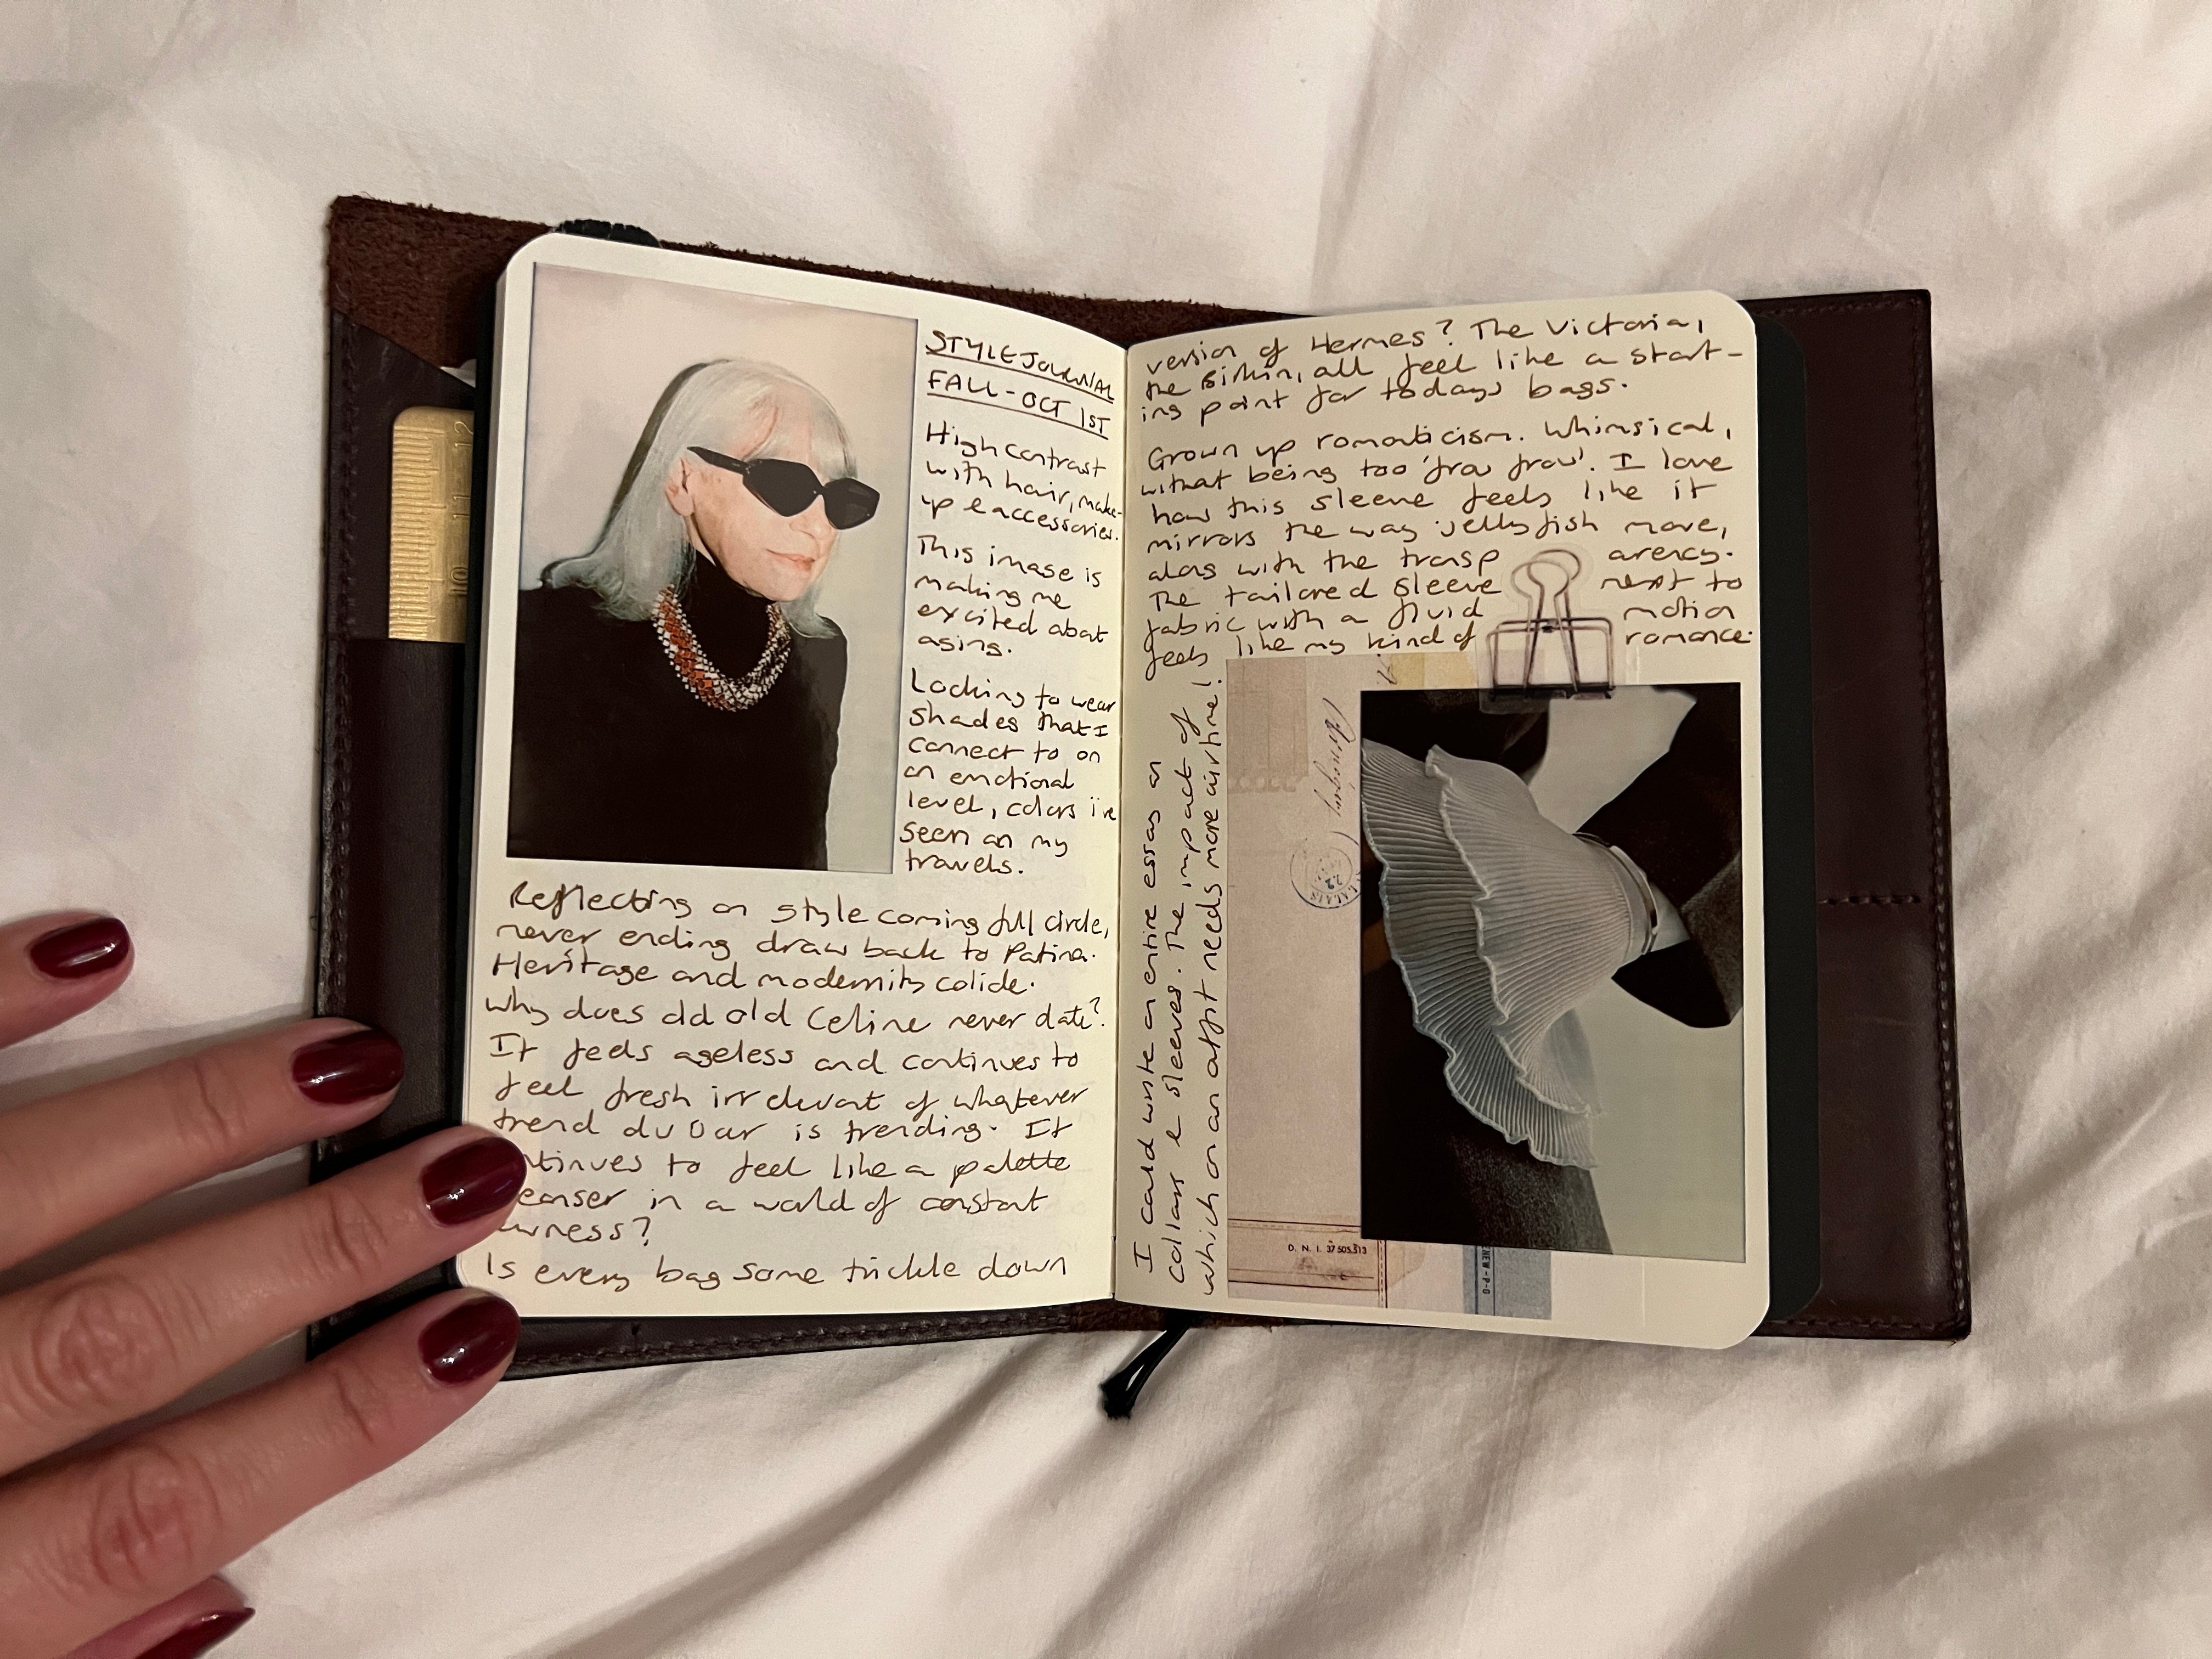 STYLE JOURNAL
FALL - OCT 1ST
High contrast
with hair, make-
up & accessories.
This image is
making me
excited about
aging.
Looking to wear
shades that I
connect to on
an emotional
level, colors i've
seen on my
travels.
Reflecting on style coming full circle,
never ending draw back to Patina.
Heritage and modernity colide.
Why does old old Celine never date?
It feels ageless and continues to
feel fresh irrelevant of whatever
trend du jour is trending. It
ntinues to feel like a palette
eanser in a world of constant
wness?
Is every bag some trickle down
version of Hermes? The Victoria,
the Birkin, all feel like a start-
ing point for todays bags.
Grown up romanticism. Whimsical,
without being too 'frou frou'. I love
how this sleeve feels like it
mirrors the way jellyfish move,
along with the transp arency.
The tailored sleeve next to
fabric with a fluid motion
feels like my kind of romance.
I could write an entire essay on
collars & sleeves. The impact of
which on an outfit needs more airtime!
CALAIS
22
D. N. I. 37.505.513